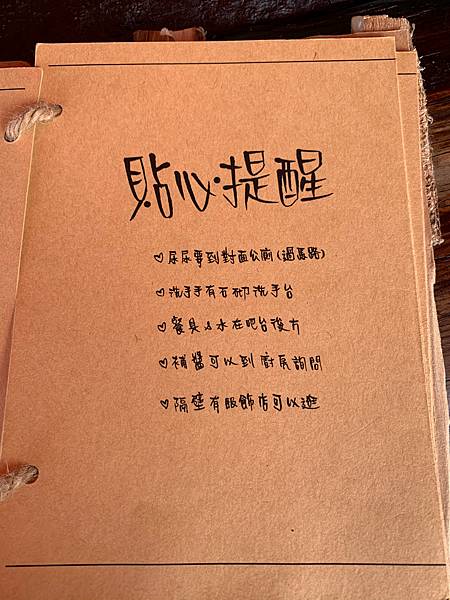 貼心提醒
♡尿尿要到對面公廁(過馬路)
♡洗手手有石砌洗手台
♡餐具&水在吧台後方
♡補醬可以到廚房詢問
♡隔壁有服飾店可以逛